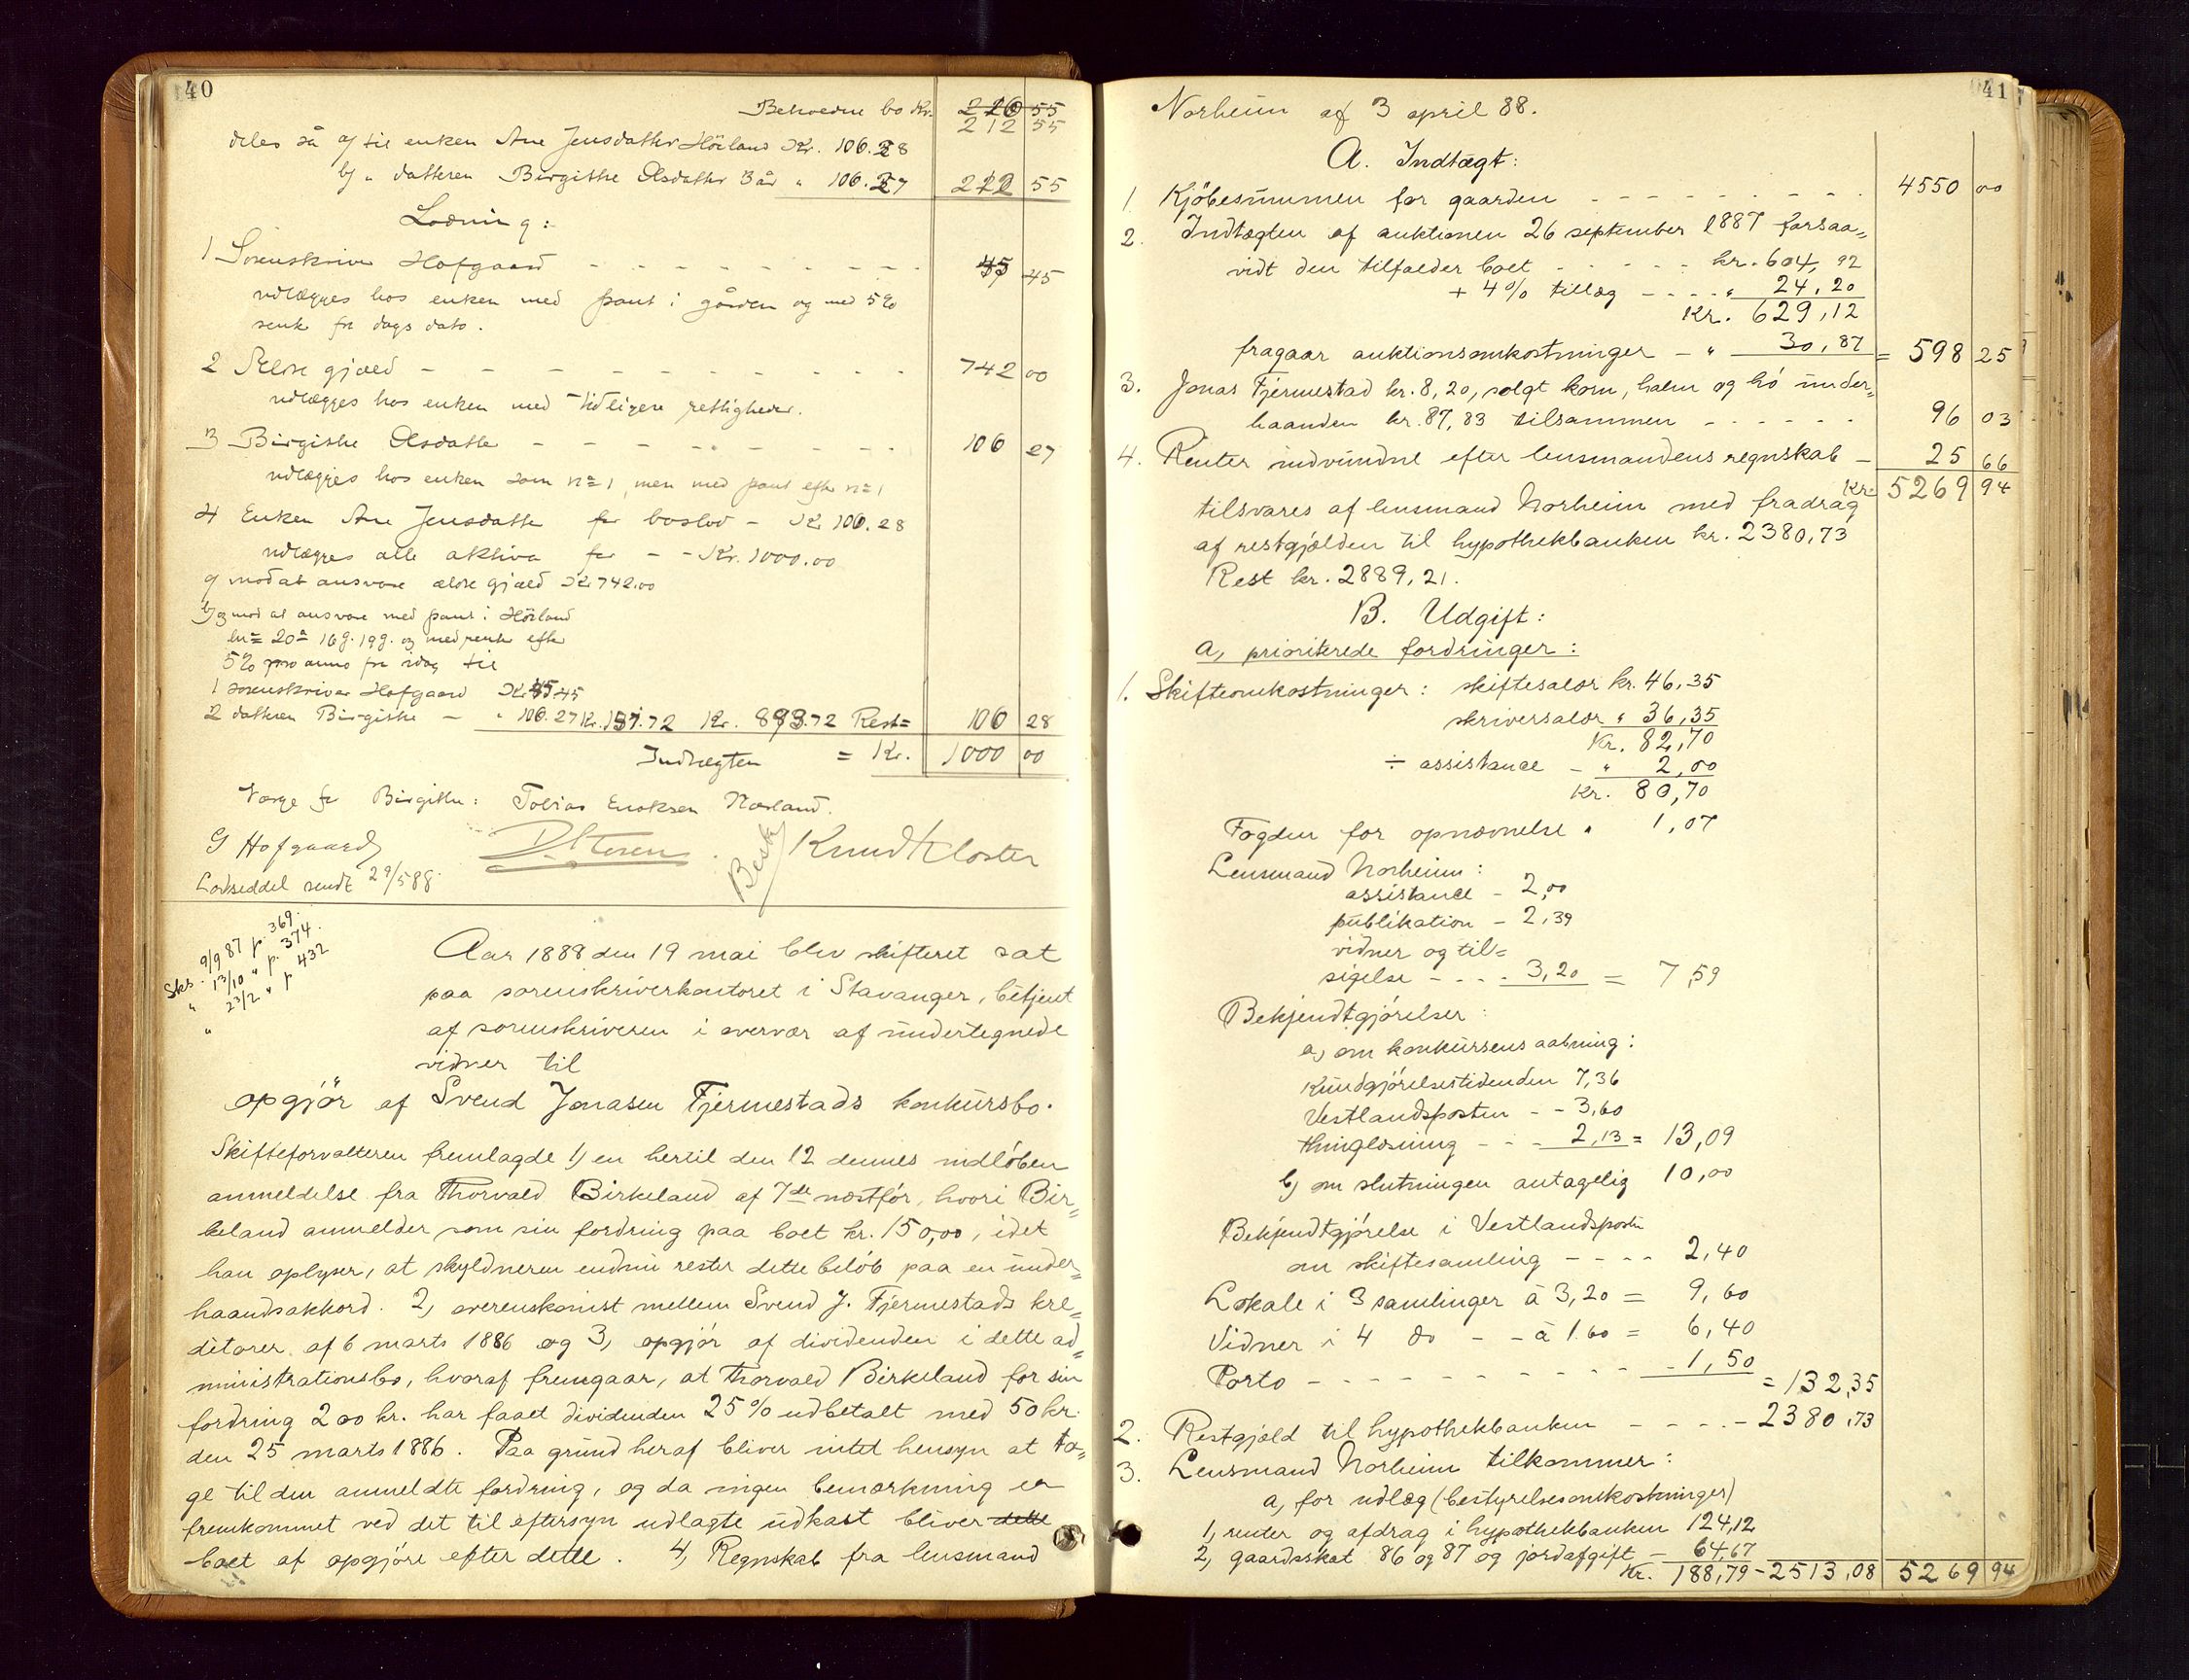 40
Beholdne bo Kr. 210 55
212 55
deles så a) til enken Ane Jensdatter Hörland Kr. 106.28
b) " datteren Birgithe Olsdatter 3 år " 106.27 212 55
Lodning:
1 Sorenskriver Hofgaard - - - - - - - - - 45 45
udlægges hos enken med pant i gården og med 5%
rente fra dags dato.
2 Ældre gjæld - - - - - - - - - 742 00
udlægges hos enken med tidligere rettigheder.
3 Birgithe Olsdatter - - - - - - - 106 27
udlægges hos enken som no 1, men med pant efter no 1
4 Enken Ane Jensdatter for boslod - Kr 106.28
udlægges alle aktiva for - - Kr. 1000.00
a) mod at ansvare ældre gjæld Kr 742.00
b) og mod at ansvare med pant i Hörland
5% pro anno fra idag til
1 sorenskriver Hofgaard Kr 45.45
2 datteren Birgithe - " 106.27 Kr. 151.72 Kr. 893.72 Rest = 106 28
Indtægten = Kr. 1000 00
Værge for Birgithe: Tobias Enoksen Hörland.
G Hofgaard Knud Kloster
Lodseddel sendt 29/5 88.
Sks. 9/9 87 p. 369.
" 13/10 " p. 374.
" 23/2 " p 432
Aar 1888 den 19 mai blev skifteret sat
paa sorenskriverkontoret i Stavanger, betjent
af sorenskriveren i overvær af undertegnede
vidner til
opgjör af Svend Jonasen Fjermestads konkursbo.
Skifteforvalteren fremlagde 1) en hertil den 12 dennes indlöben
anmeldelse fra Thorvald Birkeland af 7de næstfór, hvori Bir=
keland anmelder som sin fordring paa boet kr. 150,00, idet
han oplyser, at skyldneren endnu rester dette belöb paa en under=
haandsakkord. 2, overenskomst mellem Svend J. Fjermestads kre=
ditorer af 6 marts 1886 og 3, opgjör af dividenden i dette ad=
ministrationsbo, hvoraf fremgaar, at Thorvald Birkeland for sin
fordring 200 kr. har faaet dividenden 25% udbetalt med 50 kr.
den 25 marts 1886. Paa grund heraf bliver intet hensyn at ta=
ge til den anmeldte fordring, og da ingen bemærkning er
fremkommet ved det til eftersyn udlagte udkast bliver dette
boet at opgjöre efter dette. 4, Regnskab fra lensmand
41
Norheim af 3 april 88.
A. Indtægt:
1 Kjöbesummen for gaarden - - - - - - - - 4550 00
2. Indtægten af auktionen 26 september 1887 forsaa=
vidt den tilfalder boet - - - - - kr. 604,92
+ 4% tillæg - - - - " 24,20
Kr. 629,12
fragaar auktionsomkostninger - " 30,87 = 598 25
3. Jonas Fjermestad kr. 8,20, solgt korn, halm og hö under=
haanden kr. 87,83 tilsammen - - - - - - 96 03
4. Renter indvundne efter lensmandens regnskab - 25 66
Kr. 5269 94
tilsvares af lensmand Norheim med fradrag
af restgjælden til hypothekbanken kr. 2380,73
Rest kr. 2889,21.
B. Udgift:
a, prioriterede fordringer:
1. Skifteomkostninger: skiftesalær kr. 46,35
skriversalær " 36,35
Kr. 82,70
÷ assistance - " 2,00
Kr. 80,70
Fogden for opnævnelse " 1,07
Lensmand Norheim:
assistance - 2,00
publikation - 2,39
vidner og til=
sigelse - - - 3,20 = 7,59
Bekjendtgjörelser:
a, om konkursens aabning:
Kundgjörelsestidenden 7,36
Vestlandsposten - - 3,60
thinglæsning - - - 2,13 = 13,09
b) om slutningen antagelig 10,00
Bekjendtgjörelse i Vestlandsposten
om skiftesamling - - - - 2,40
Lokale i 3 samlinger à 3,20 = 9,60
Vidner i 4 do - - à 1.60 = 6,40
Porto - - - - - - - - - - - 1,50
= 132,35
2. Restgjæld til hypothekbanken - - - - 2380,73
3. Lensmand Norheim tilkommer:
a, for udlæg (bestyrelsesomkostninger)
1, renter og afdrag i hypothekbanken 124,12
2, gaardsskat 86 og 87 og jordafgift - 64,67
Kr. 188,79 - 2513,08 5269 94